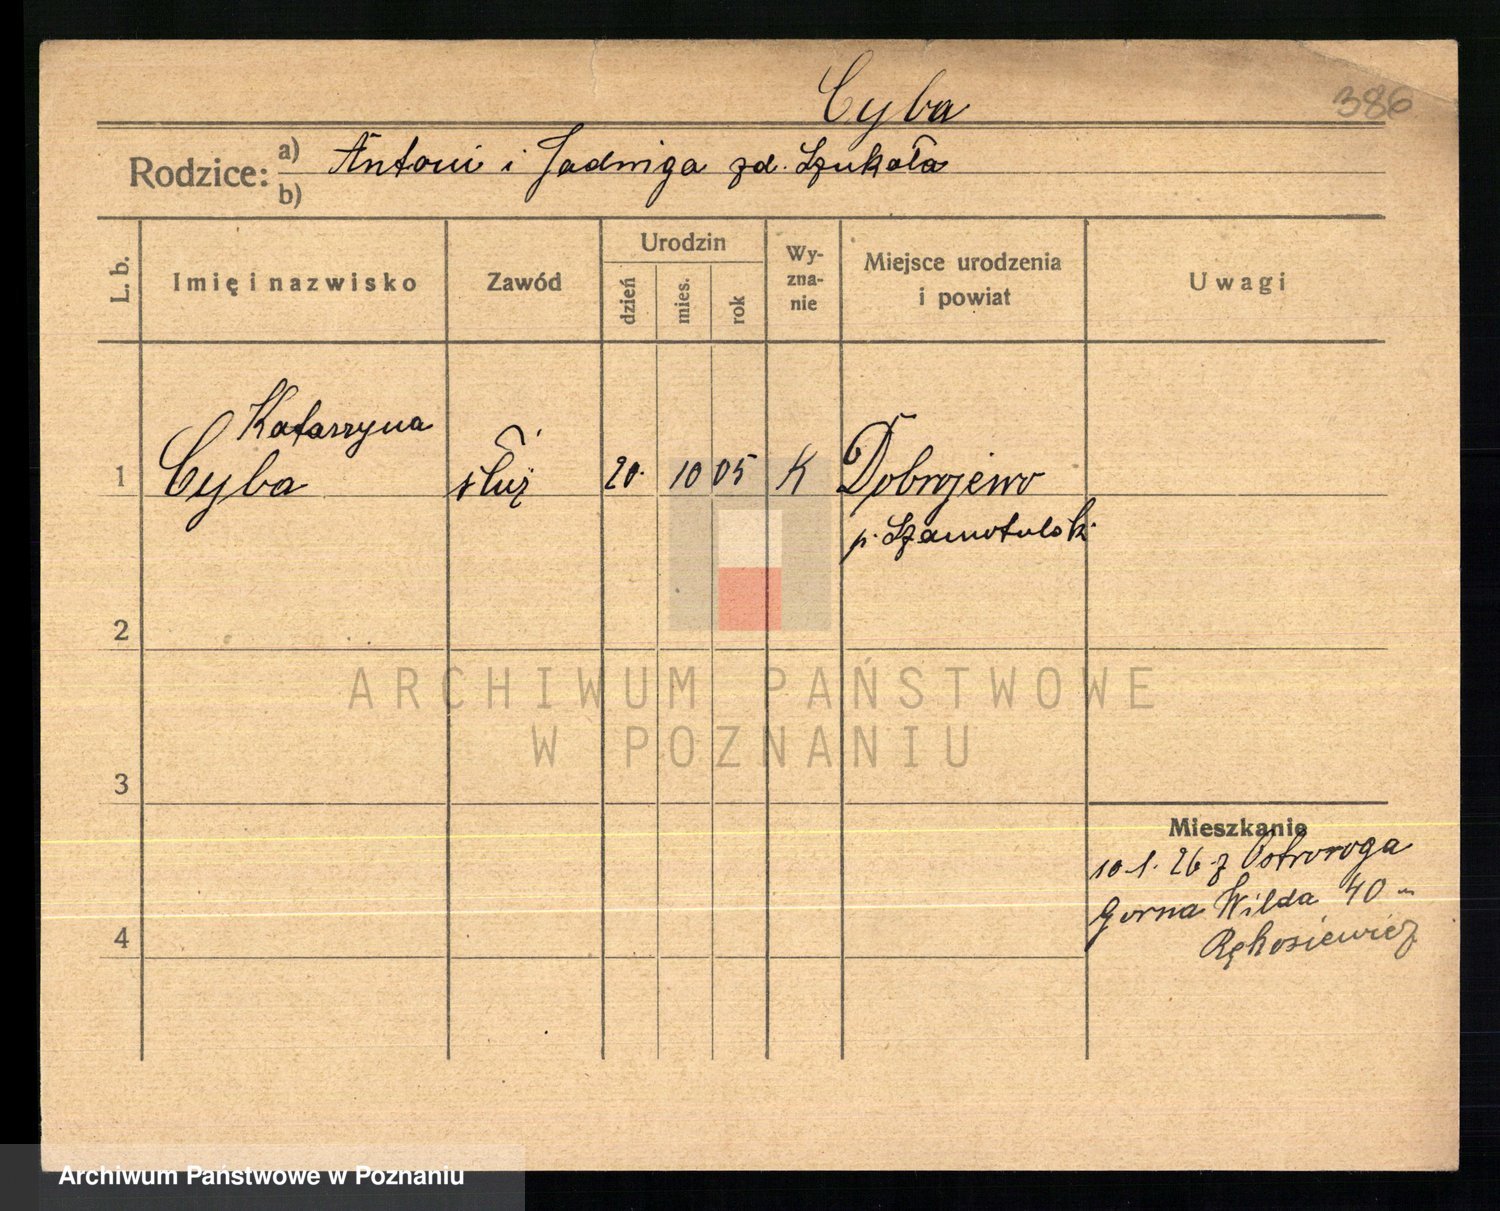 Cyba
386
Rodzice: a) Antoni i Jadwiga zd. Szukała
b)
L. b.
Imię i nazwisko
Zawód
Urodzin
dzień
mies.
rok
Wy-
zna-
nie
Miejsce urodzenia
i powiat
Uwagi
Katarzyna
1 Cyba służ 20. 10 05 K Dobrojewo
p. Szamotulski
2
3
4
Mieszkanie
10.1.26 z Ostroroga
Gorna Wilda 40
ARCHIWUM PAŃSTWOWE
W POZNANIU
Archiwum Państwowe w Poznaniu